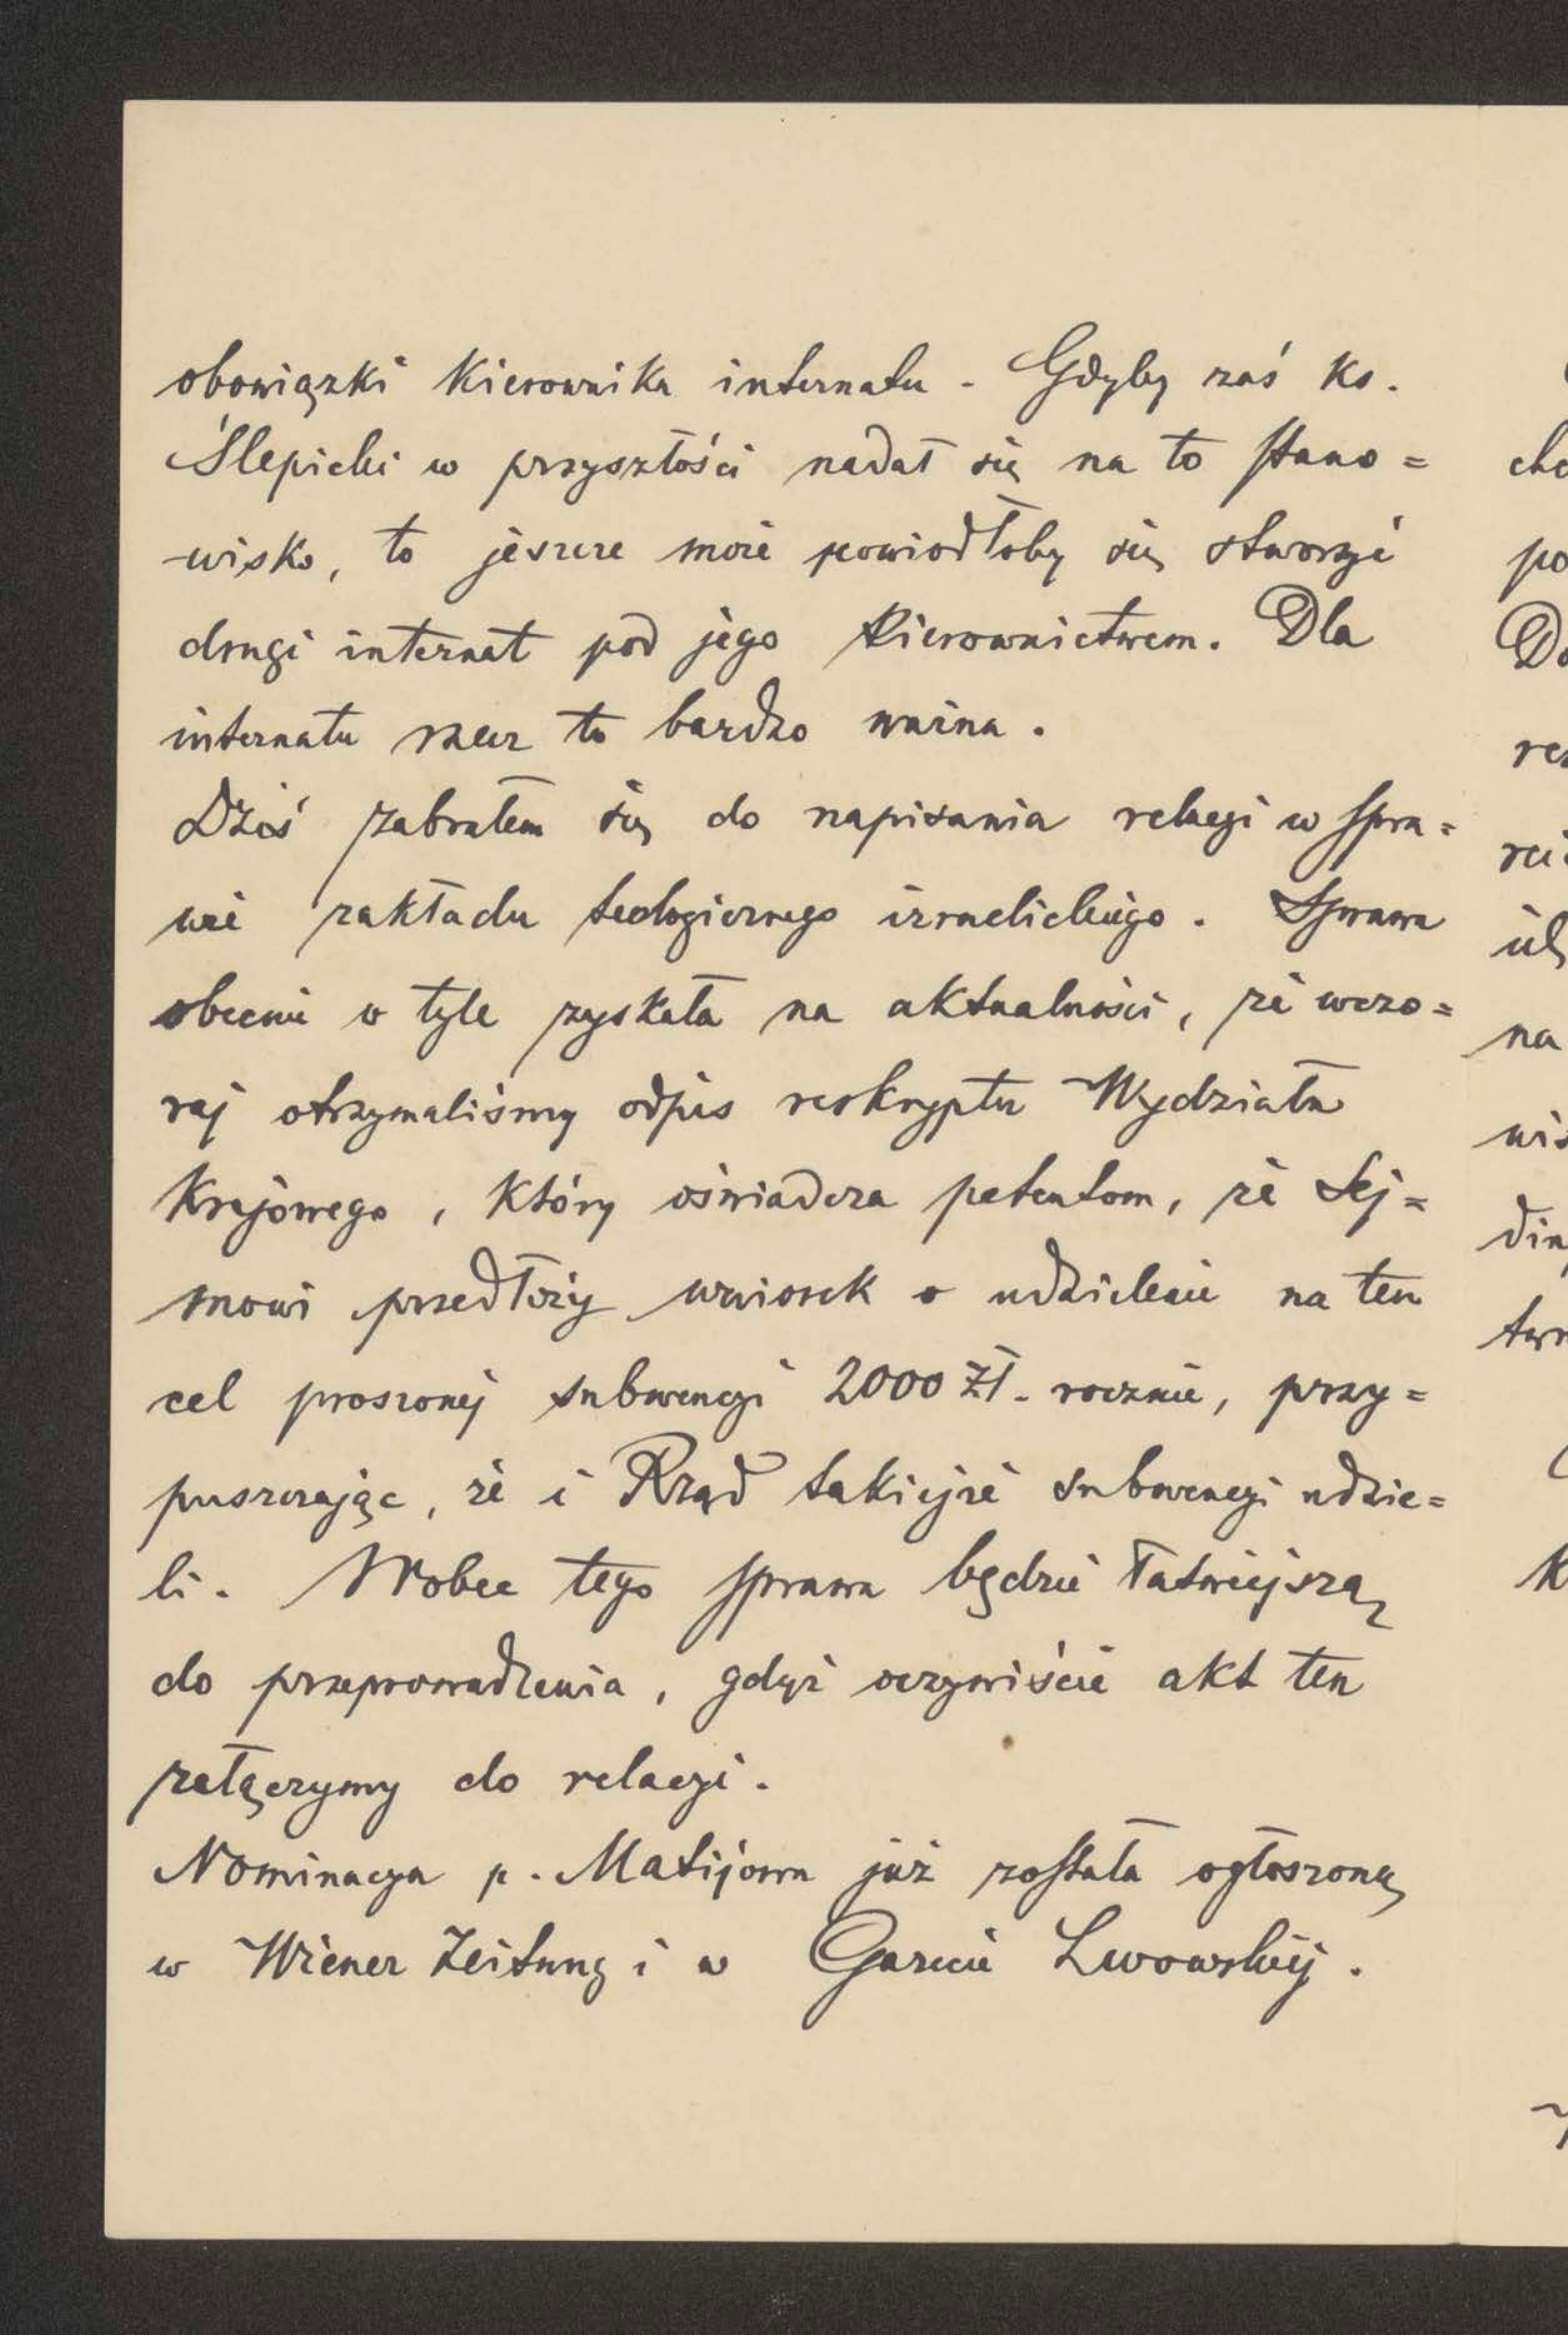 obowiązki kierownika internatu - Gdyby zaś ks.
Ślepicki w przyszłości nadał się na to stano=
-wisko, to jeszcze może powiodłoby się stworzyć
drugi internat pod jego kierownictwem. Dla
internatu rzecz to bardzo ważna.
Dziś zabrałem się do napisania relacyi w spra=
wie zakładu teologicznego izraelickiego. Sprawa
obecnie w tyle zyskała na aktualności, że wczo=
raj otrzymaliśmy odpis reskryptu Wydziału
Krajowego, który oświadcza petentom, że Sej=
mowi przedłoży wniosek o udzielenie na ten
cel proszonej subwencyi 2000 zł. rocznie, przy=
puszczając, że i Rząd takiejże subwencyi udzie=
li. Wobec tego sprawa będzie łatwiejszą
do przeprowadzenia, gdyż oczywiście akt ten
załączymy do relacyi.
Nominacya p. Matijowa już została ogłoszoną
w Wiener Zeitung i w Gazecie Lwowskiej.